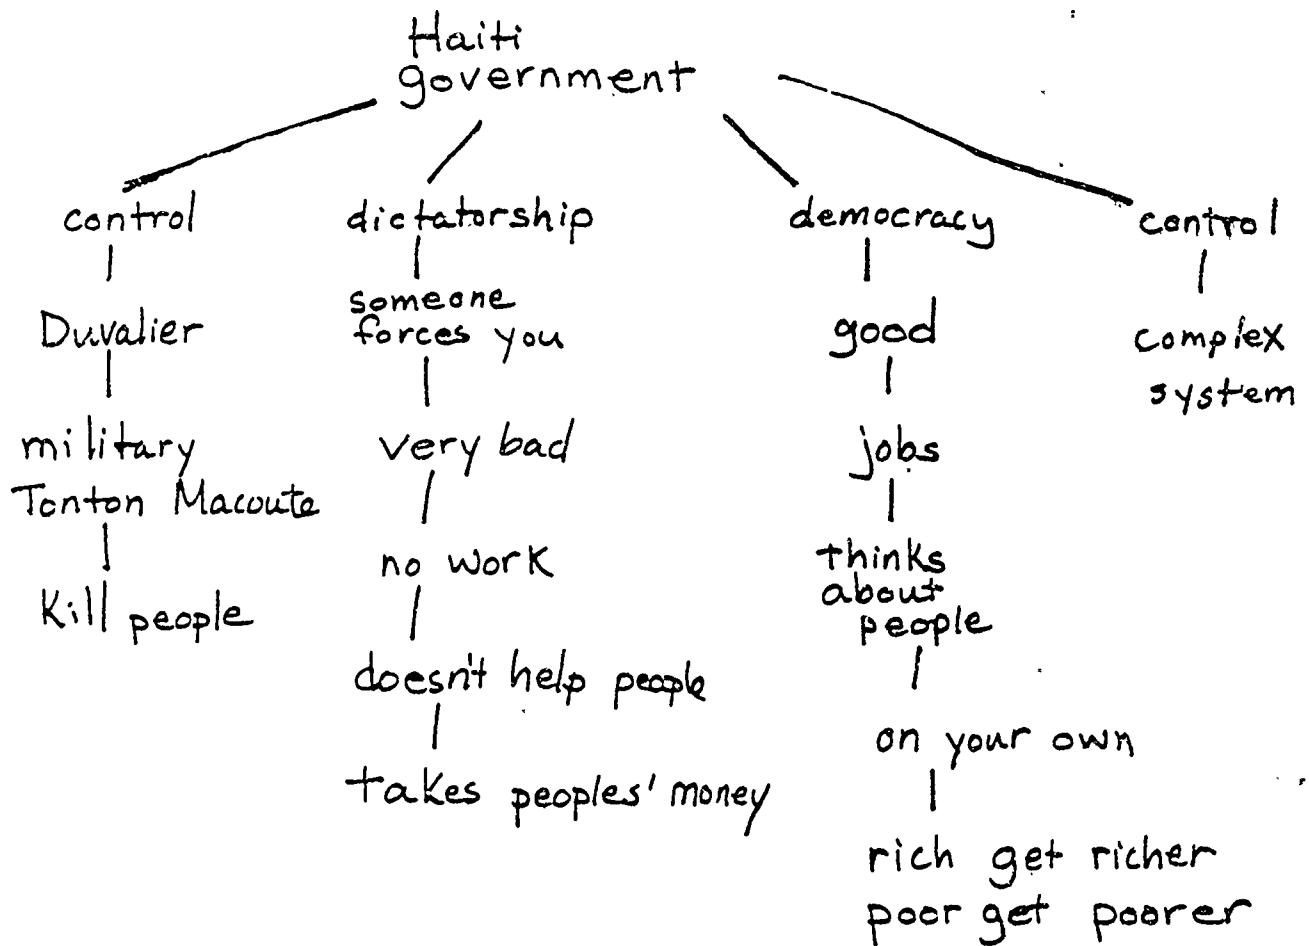 Haiti
government
control
Duvalier
military
Tonton Macoute
Kill people
dictatorship
someone
forces you
very bad
no work
doesn't help people
takes peoples' money
democracy
good
jobs
thinks
about
people
on your own
rich get richer
poor get poorer
control
complex
system